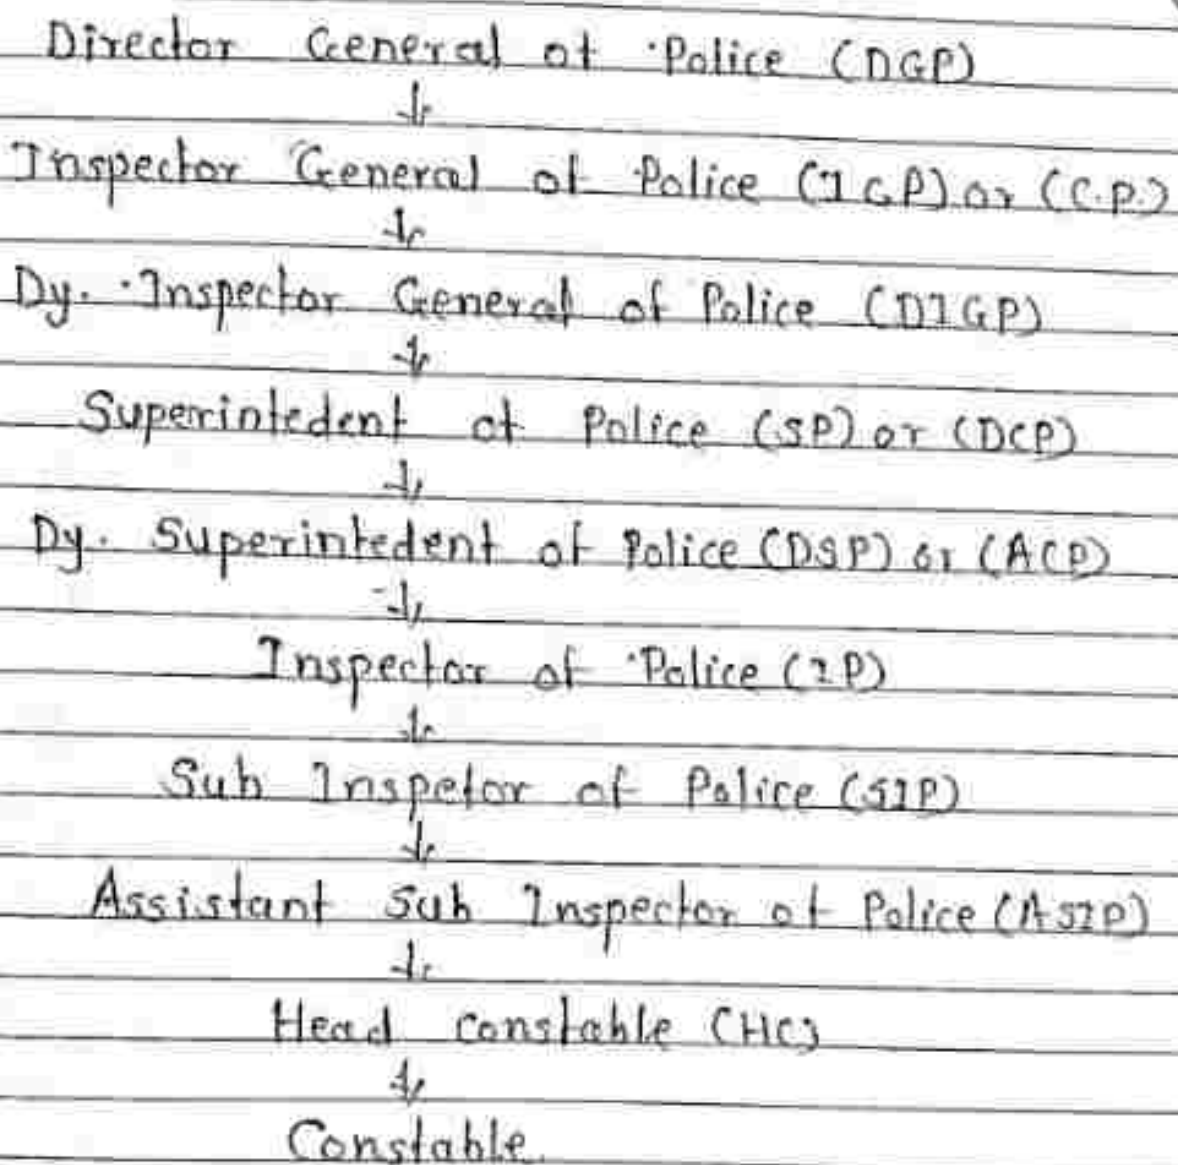 Director General of Police (DGP)
↓
Inspector General of Police (IGP) or (C.P.)
↓
Dy. Inspector General of Police (DIGP)
↓
Superintedent of Police (SP) or (DCP)
↓
Dy. Superintedent of Police (DSP) or (ACP)
↓
Inspector of Police (IP)
↓
Sub Inspetor of Police (SIP)
↓
Assistant Sub Inspector of Police (ASIP)
↓
Head constable (HC)
↓
Constable.